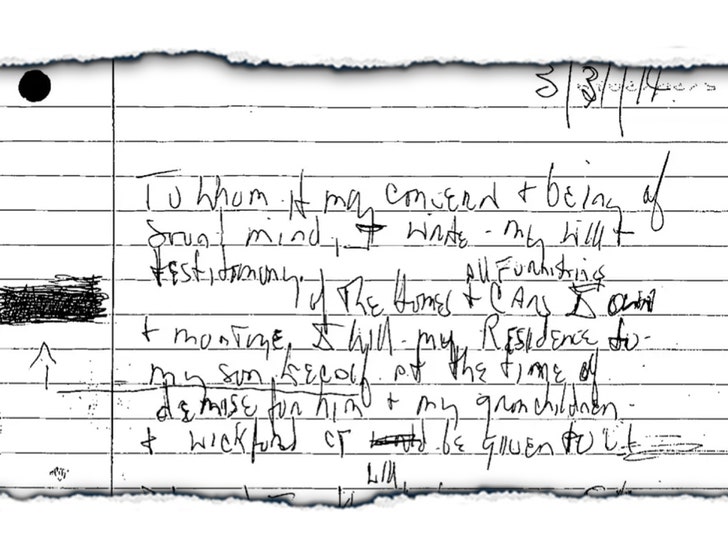 3/31/14
To whom it may concern & being of
sound mind, I write - my will &
testimony.
all furnishings
of The Homes & CArs I own
I will my Residence to -
my son Kecalf at the time of
demise for him & my granchildren -
& wickford CT be given to
Will